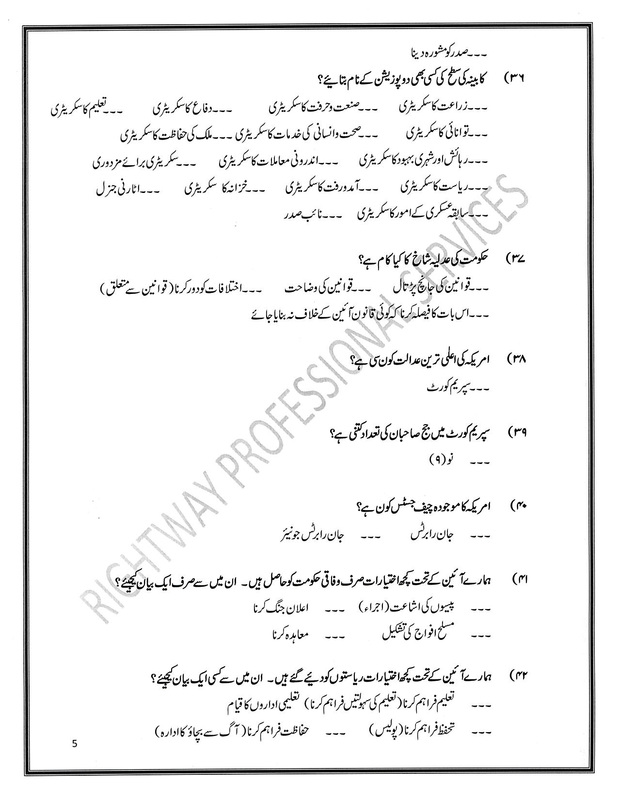 ۔۔۔ صدر کو مشورہ دینا
۳۶) کابینہ کی سطح کی کسی بھی دو پوزیشن کے نام بتائیے؟
۔۔۔ زراعت کا سکریٹری ۔۔۔ صنعت و حرفت کا سکریٹری ۔۔۔ دفاع کا سکریٹری ۔۔۔ تعلیم کا سکریٹری
۔۔۔ توانائی کا سکریٹری ۔۔۔ صحت و انسانی کی خدمات کا سکریٹری ۔۔۔ ملک کی حفاظت کا سکریٹری
۔۔۔ رہائش اور شہری بہبود کا سکریٹری ۔۔۔ اندرونی معاملات کا سکریٹری ۔۔۔ سکریٹری برائے مزدوری
۔۔۔ ریاست کا سکریٹری ۔۔۔ آمدورفت کا سکریٹری ۔۔۔ خزانہ کا سکریٹری ۔۔۔ اٹارنی جنرل
۔۔۔ سابقہ عسکری کے امور کا سکریٹری ۔۔۔ نائب صدر
۳۷) حکومت کی عدلیہ شاخ کا کیا کام ہے؟
۔۔۔ قوانین کی جانچ پڑتال ۔۔۔ قوانین کی وضاحت ۔۔۔ اختلافات کو دور کرنا (قوانین سے متعلق)
۔۔۔ اس بات کا فیصلہ کرنا کہ کوئی قانون آئین کے خلاف نہ بنایا جائے
۳۸) امریکہ کی اعلیٰ ترین عدالت کون سی ہے؟
۔۔۔ سپریم کورٹ
۳۹) سپریم کورٹ میں جج صاحبان کی تعداد کتنی ہے؟
۔۔۔ نو (۹)
۴۰) امریکہ کا موجودہ چیف جسٹس کون ہے؟
۔۔۔ جان رابرٹس ۔۔۔ جان رابرٹس جونیئر
۴۱) ہمارے آئین کے تحت کچھ اختیارات صرف وفاقی حکومت کو حاصل ہیں۔ ان میں سے صرف ایک بیان کیجیئے؟
۔۔۔ پیسوں کی اشاعت (اجراء) ۔۔۔ اعلان جنگ کرنا
۔۔۔ مسلح افواج کی تشکیل ۔۔۔ معاہدہ کرنا
۴۲) ہمارے آئین کے تحت کچھ اختیارات ریاستوں کو دیئے گئے ہیں۔ ان میں سے کسی ایک بیان کیجیئے؟
۔۔۔ تعلیم فراہم کرنا (تعلیم کی سہولتیں فراہم کرنا) تعلیمی اداروں کا قیام
۔۔۔ تحفظ فراہم کرنا (پولیس) ۔۔۔ حفاظت فراہم کرنا (آگ سے بچاؤ کا ادارہ)
5
RIGHTWAY PROFESSIONAL SERVICES